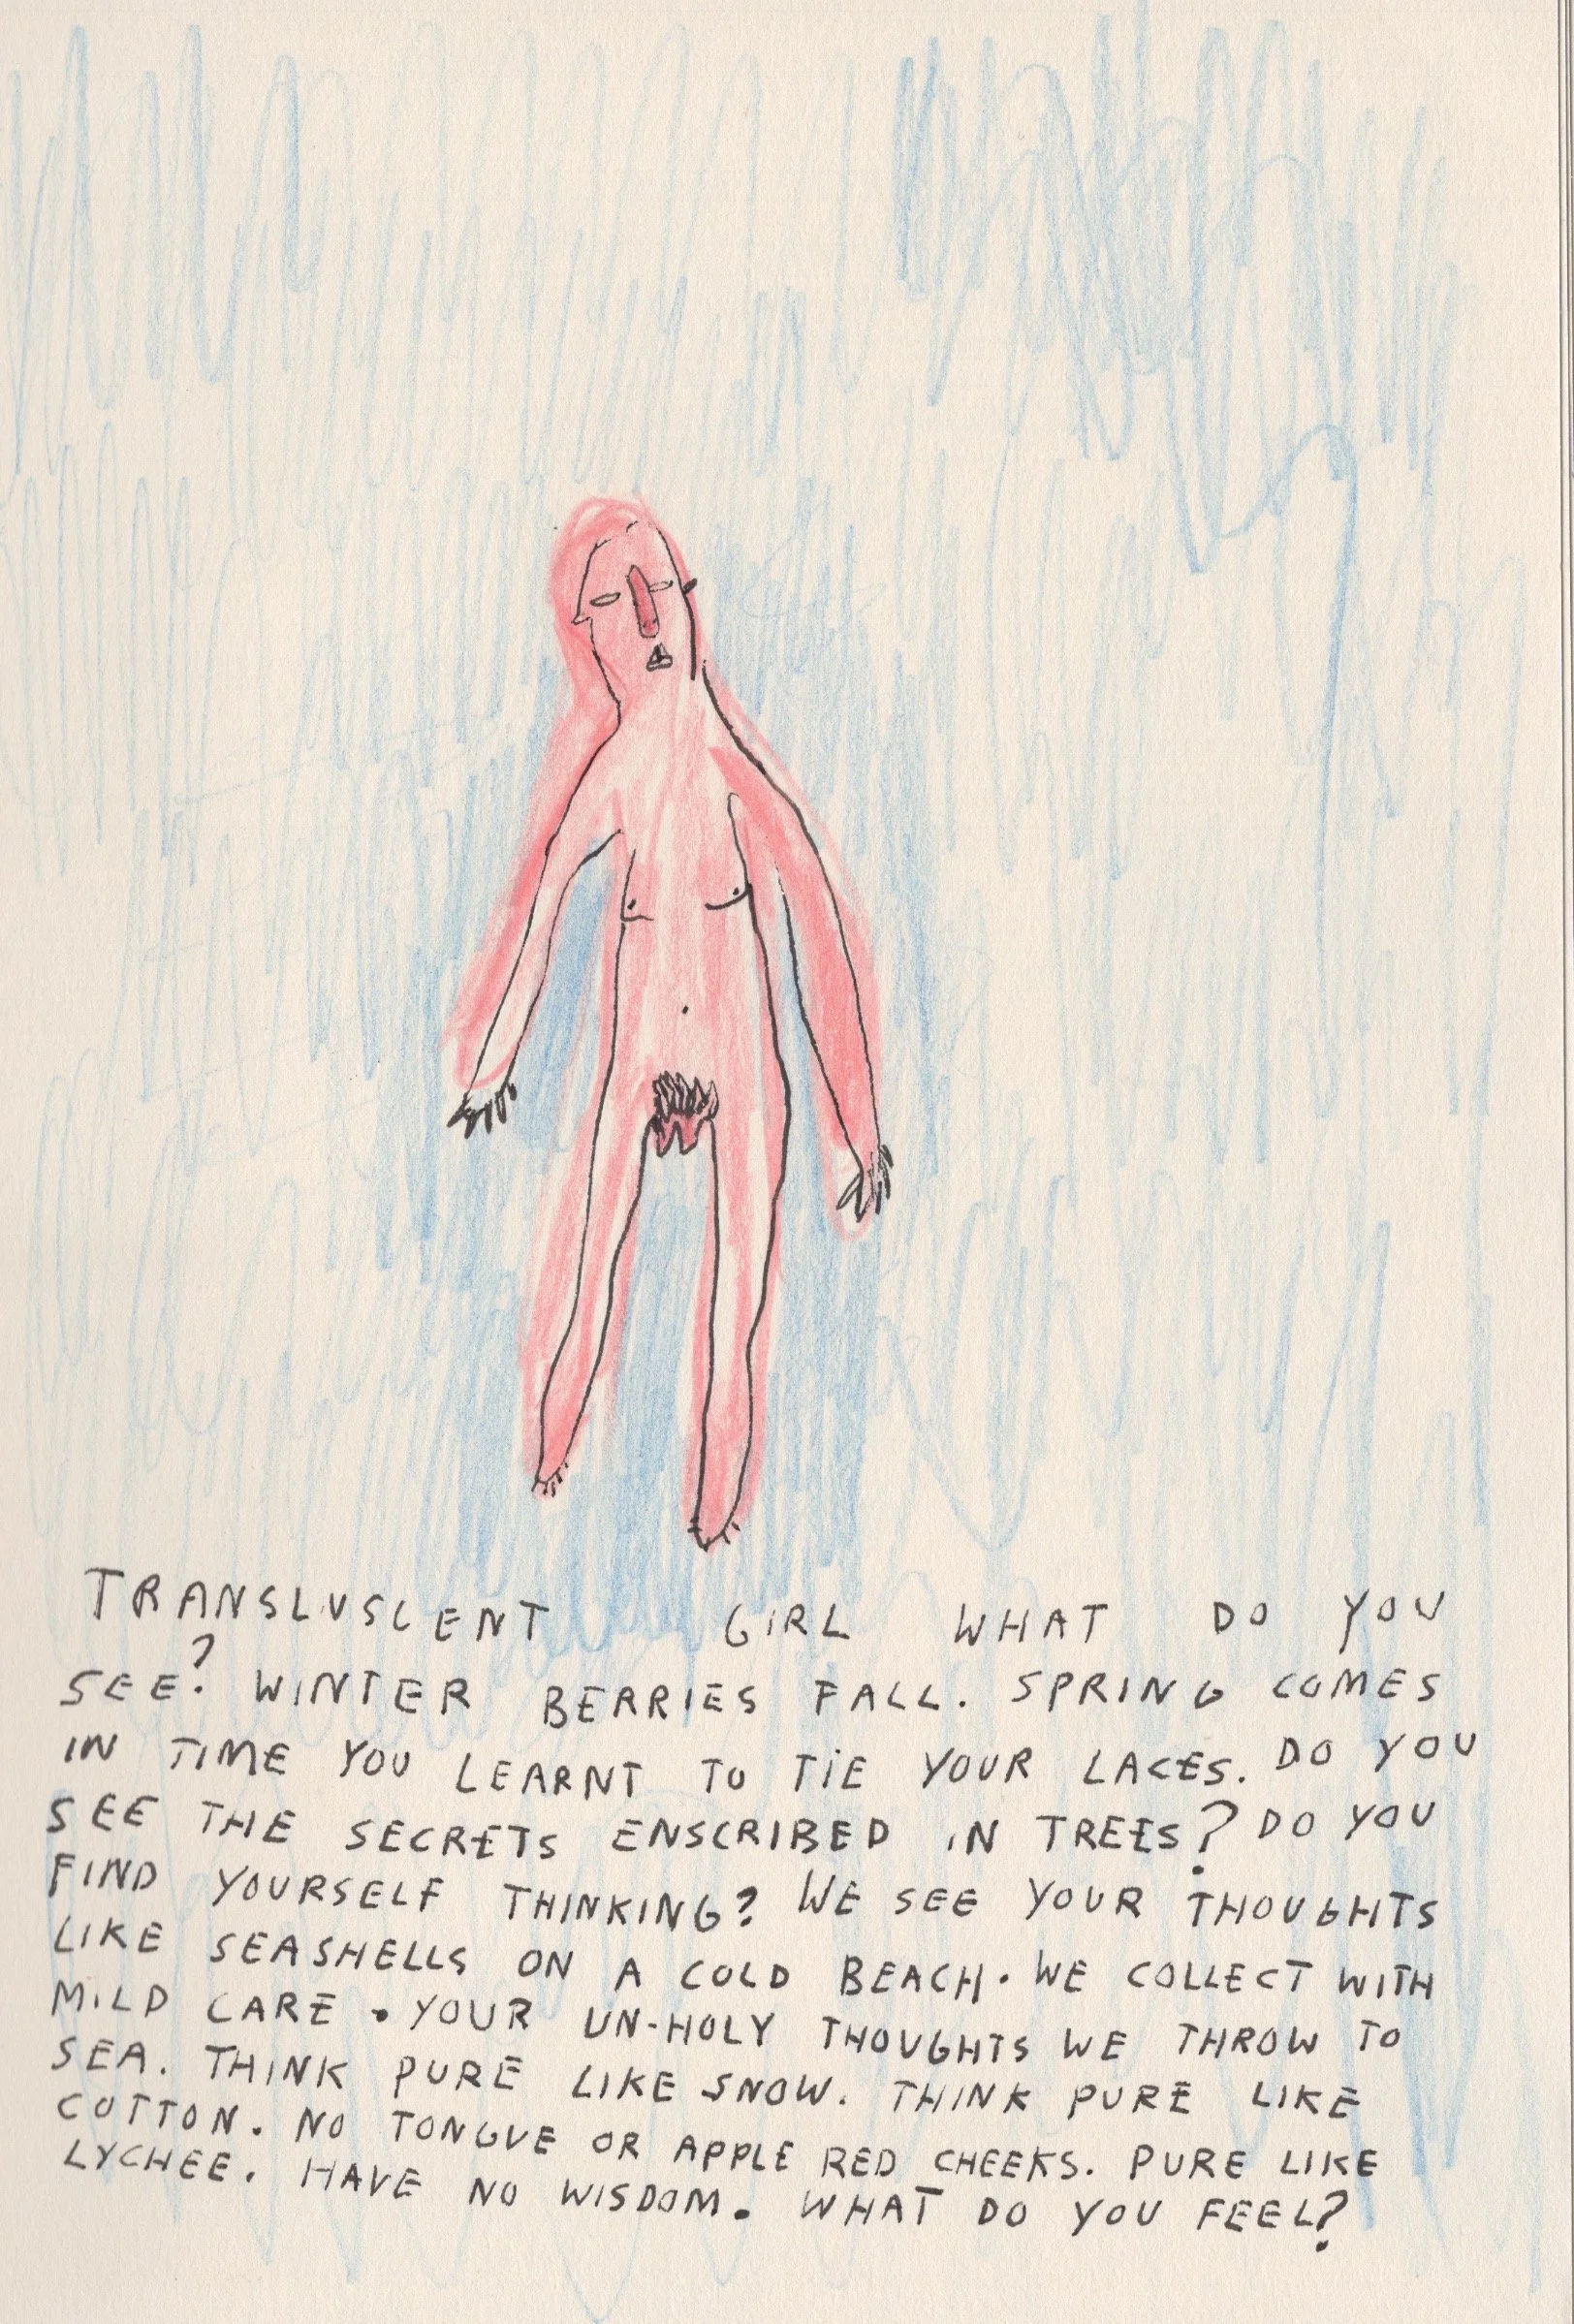 TRANSLUSCENT GIRL WHAT DO YOU
SEE? WINTER BERRIES FALL. SPRING COMES
IN TIME YOU LEARNT TO TIE YOUR LACES. DO YOU
SEE THE SECRETS ENSCRIBED IN TREES? DO YOU
FIND YOURSELF THINKING? WE SEE YOUR THOUGHTS
LIKE SEASHELLS ON A COLD BEACH. WE COLLECT WITH
MILD CARE. YOUR UN-HOLY THOUGHTS WE THROW TO
SEA. THINK PURE LIKE SNOW. THINK PURE LIKE
COTTON. NO TONGUE OR APPLE RED CHEEKS. PURE LIKE
LYCHEE. HAVE NO WISDOM. WHAT DO YOU FEEL?